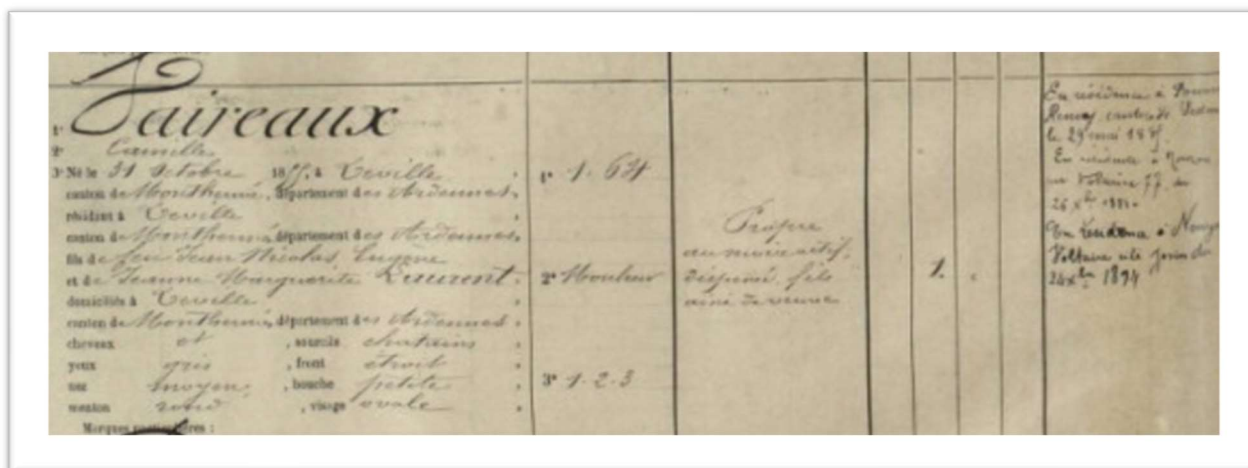 1°
aireaux
2° Camille
3° Né le 31 8tobre 18 , à Deville ,
canton de Monthermé, département des Ardennes,
résidant à Deville ,
canton de Monthermé département des Ardennes,
fils de feu Jean Nicolas Eugène
et de Jeanne Marguerite ,
domiciliés à Deville ,
canton de Monthermé, département des Ardennes,
cheveux et , sourcils chatains ,
yeux gris , front étroit ,
nez moyen, , bouche petite ,
menton rond , visage ovale ,
Marques particulières :
1°
2° Mouleur
3° 1-2-3
Propre
au service actif,
dispensé, fils
ainé de veuve
1.
En résidence à
le 29 mai
En résidence à
Voltaire 77, du
26 xbre
En résidence à
Voltaire cité
1894